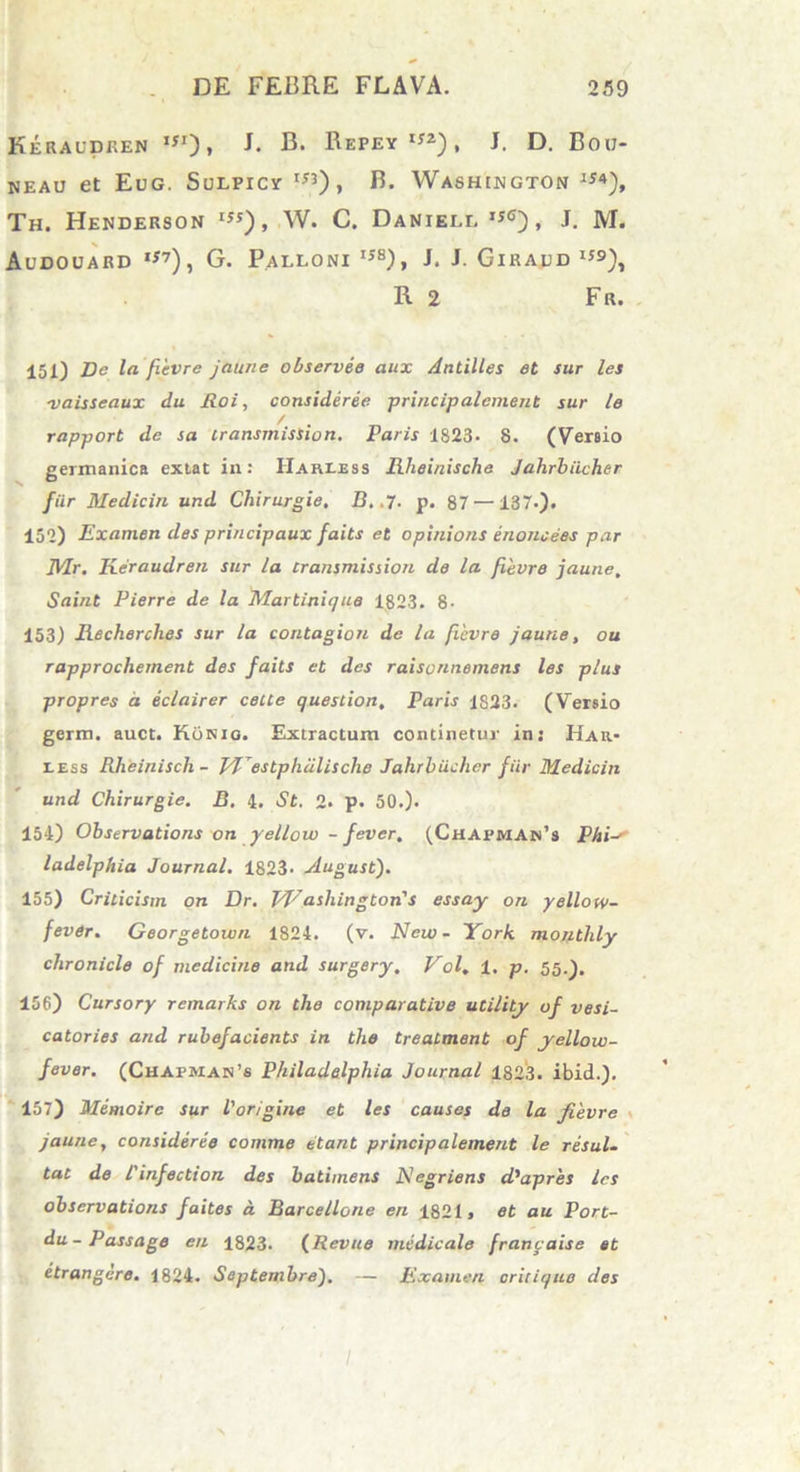 DE FEBRE FLAVA. 259
KÉRAUDREN ¹⁵¹), J. B. REPEY ¹⁵²), J. D. BOU-
NEAU et EUG. SULPICY ¹⁵³), B. WASHINGTON ¹⁵⁴),
TH. HENDERSON ¹⁵⁵), W. C. DANIELL ¹⁵⁶), J. M.
AUDOUARD ¹⁵⁷), G. PALLONI ¹⁵⁸), J. J. GIRAUD ¹⁵⁹),
R 2 FR.
151) De la fièvre jaune observée aux Antilles et sur les
vaisseaux du Roi, considérée principalement sur le
rapport de sa transmission. Paris 1823. 8. (Versio
germanica extat in: HARLESS Rheinische Jahrbücher
für Medicin und Chirurgie. B. 7. p. 87—137.).
152) Examen des principaux faits et opinions énoncées par
Mr. Kéraudren sur la transmission de la fièvre jaune.
Saint Pierre de la Martinique 1823. 8.
153) Recherches sur la contagion de la fièvre jaune, ou
rapprochement des faits et des raisonnemens les plus
propres à éclairer cette question. Paris 1823. (Versio
germ. auct. KÖNIG. Extractum continetur in: HAR-
LESS Rheinisch-Westphälische Jahrbücher für Medicin
und Chirurgie. B. 4. St. 2. p. 50.).
154) Observations on yellow-fever. (CHAPMAN's Phi-
ladelphia Journal. 1823. August).
155) Criticism on Dr. Washington's essay on yellow-
fever. Georgetown 1824. (v. New-York monthly
chronicle of medicine and surgery. Vol. 1. p. 55.).
156) Cursory remarks on the comparative utility of vesi-
catories and rubefacients in the treatment of yellow-
fever. (CHAPMAN's Philadelphia Journal 1823. ibid.).
157) Mémoire sur l'origine et les causes de la fièvre
jaune, considérée comme étant principalement le résul-
tat de l'infection des batimens Negriens d'après les
observations faites à Barcellone en 1821, et au Port-
du-Passage en 1823. (Revue médicale française et
étrangère. 1824. Septembre). — Examen critique des